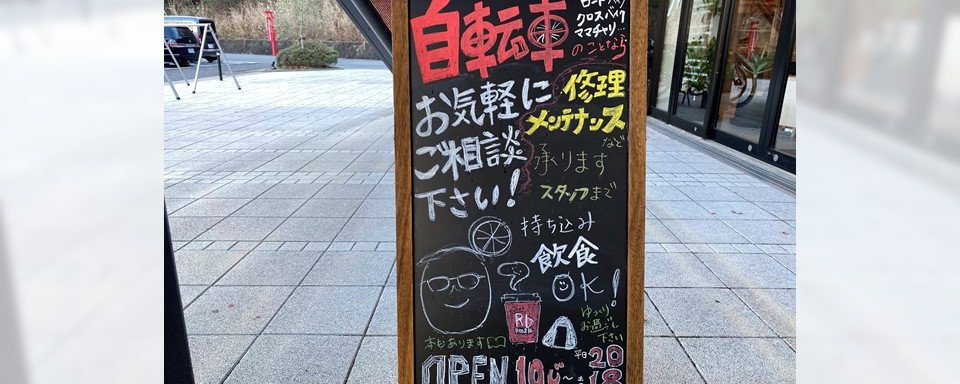 自転車
クロスバイク
ママチャリ…
のことなら
お気軽に
ご相談
下さい!
修理
メンテナンス
など
承ります
スタッフまで
持ち込み
飲食
OK!
Rb
ゆっくり
お過ごし
下さい
本もあります
OPEN 10
平日 20
18